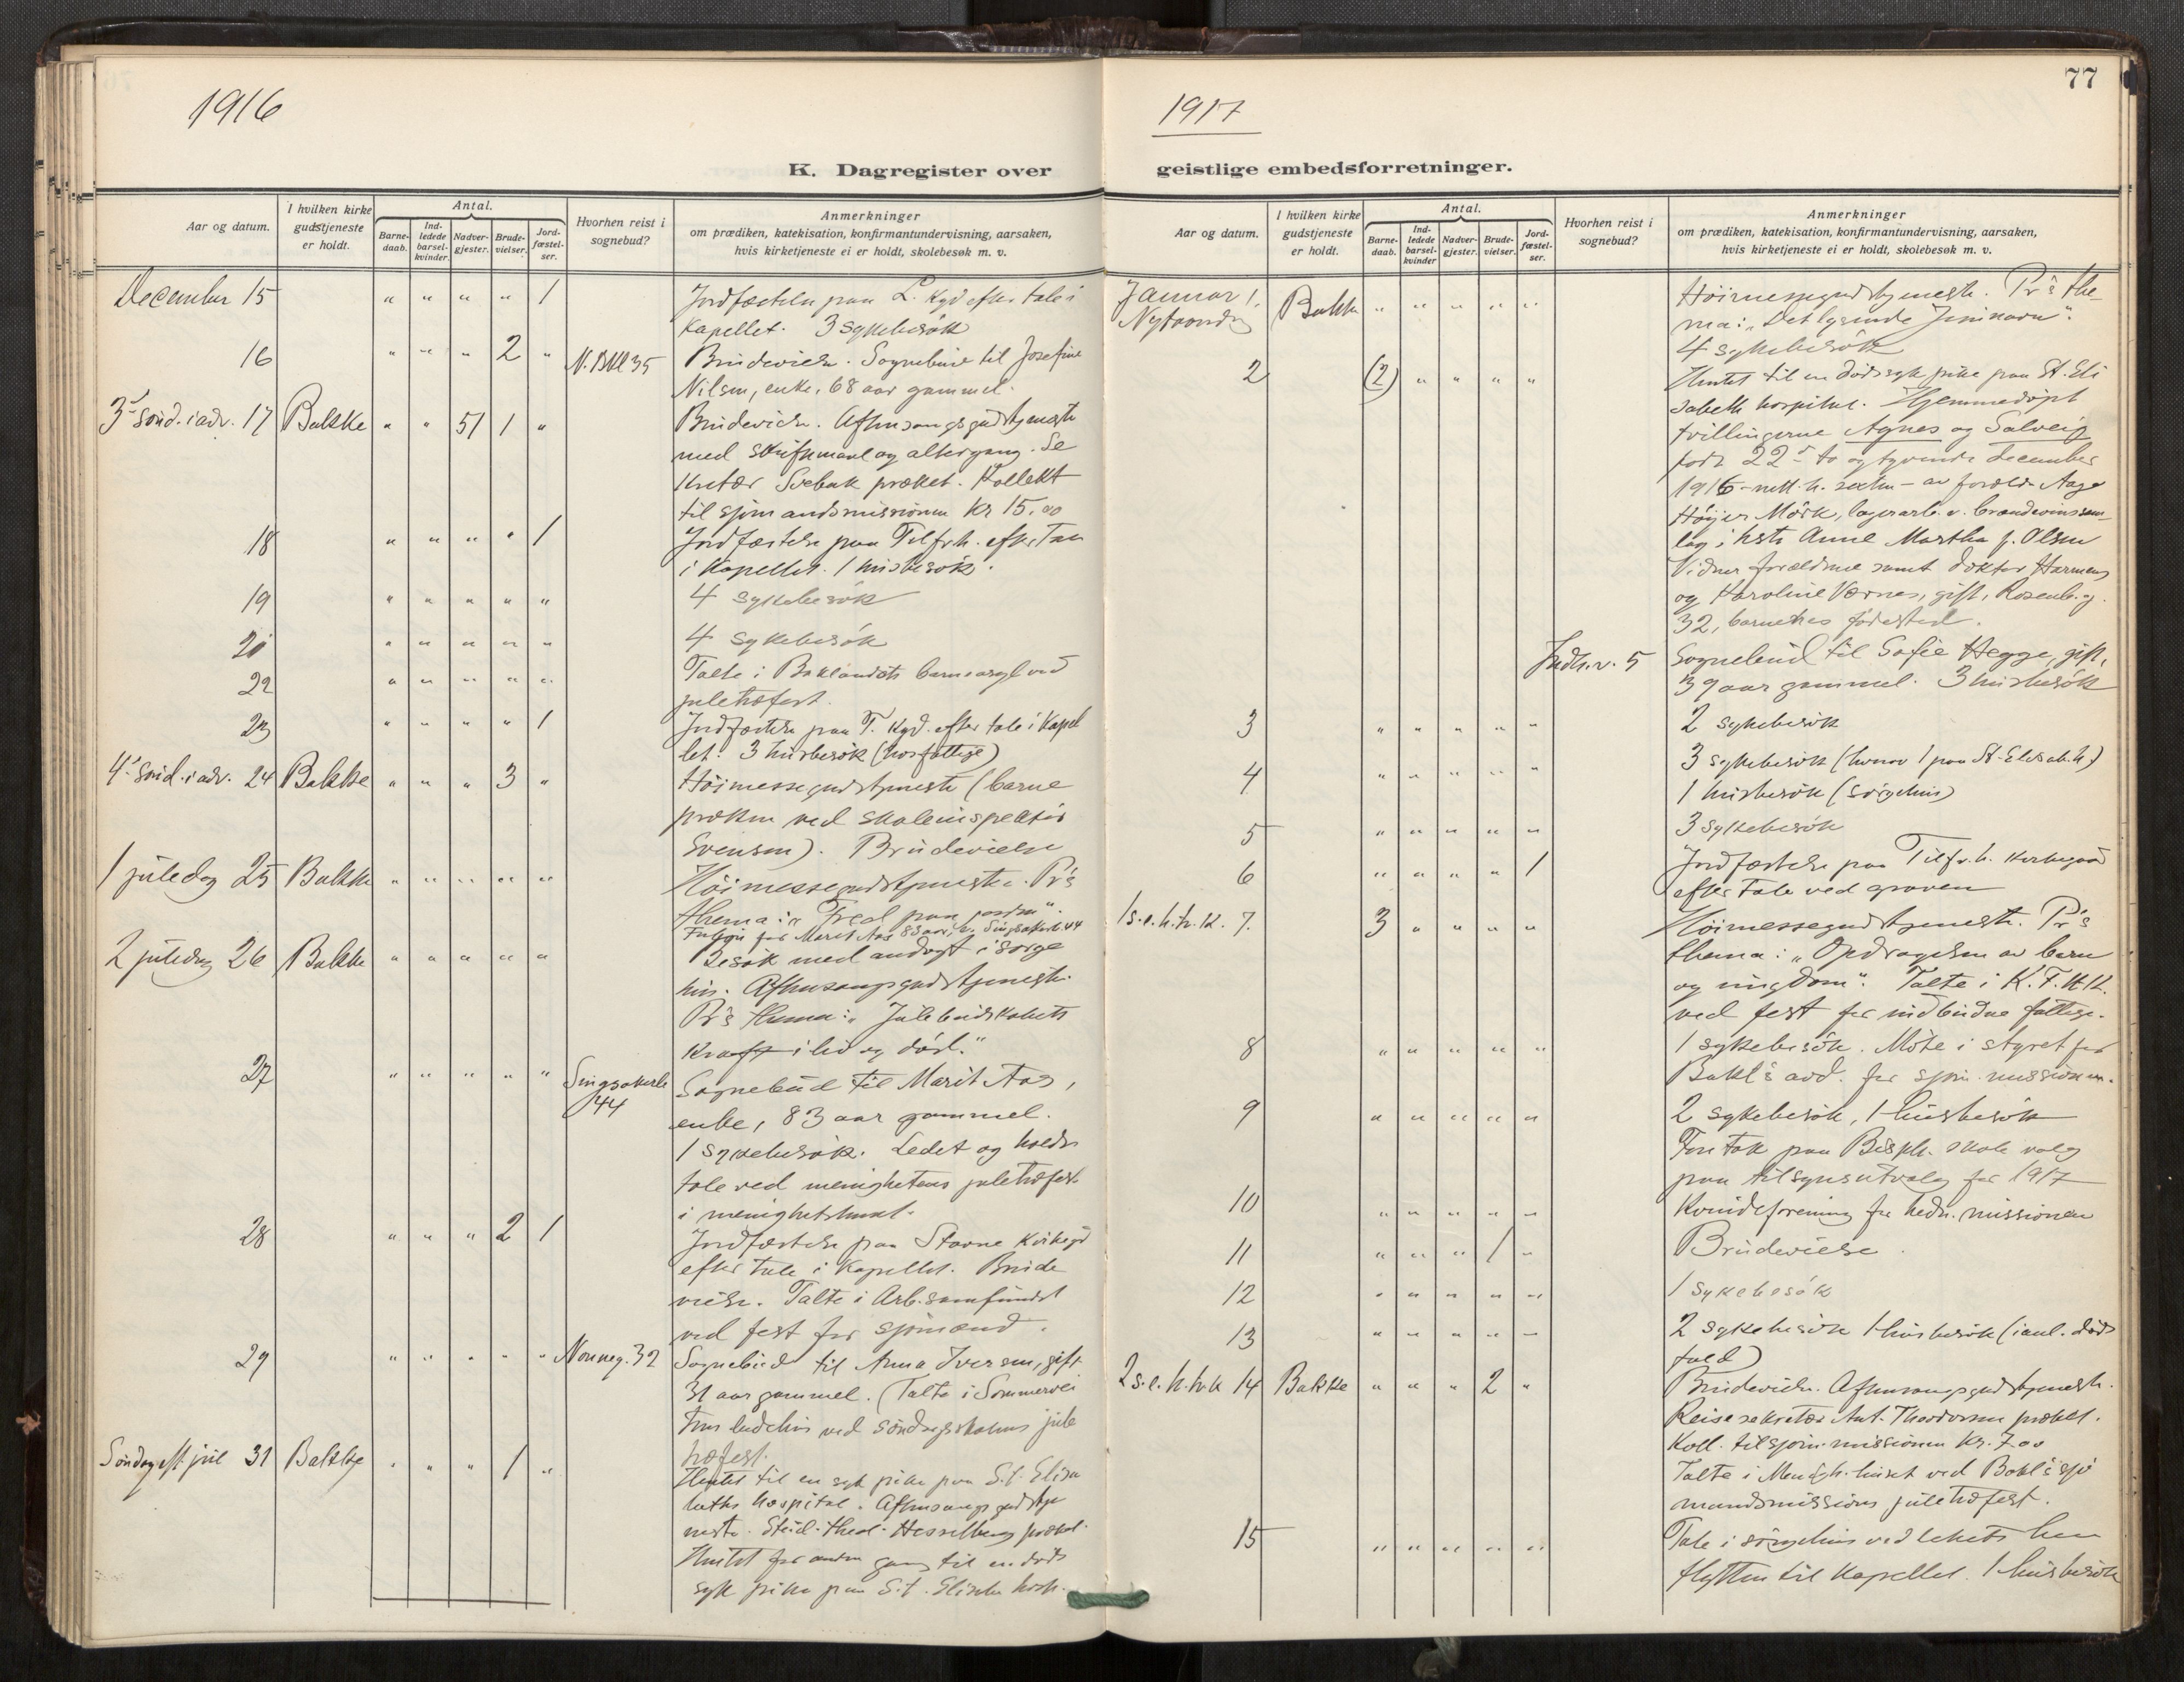 1916
K. Dagregister over
Aar og datum.
I hvilken kirke gudstjeneste er holdt.
Antal.
Barne-daab.
Ind-ledede barsel-kvinder.
Nadver-gjester.
Brude-vielser.
Jord-fæstel-ser.
Hvorhen reist i sognebud?
Anmerkninger
om prædiken, katekisation, konfirmantundervisning, aarsaken,
hvis kirketjeneste ei er holdt, skolebesøk m. v.
December 15 " " " " 1 Jordfæstelse paa L. kgd efter tale i
Kapellet. 3 sykebesök
16 " " " 2 " Brudevielse. Sognebud til Josefine
Nilsen, enke, 68 aar gammel.
3die sönd. i adv. 17 Bakke " " 51 1 " Brudevielse. Aftensangsgudstjeneste
med skriftemaal og altergang. Se
kretær Svebak præket. Kollekt
til sjömandsmissionen Kr 15.00
18 " " " " 1 Jordfæstelse paa Tilfr.h. efter Tale
i Kapellet. 1 husbesök.
19 " " " " " 4 sykebesök
20 " " " " " 4 sykebesök
22 " " " " " Talte i Baklandets barneasyl ved
juletræfest.
23 " " " " 1 Jordfæstelse paa T. kgd. efter tale i Kapel
let. 3 husbesök (hos fattige)
4. sönd. i adv. 24 Bakke " " " 3 " Höimessegudstjeneste (barne
præken ved skoleinspektör
Svensen). Brudevielse
1 juledag 25 Bakke " " " " " Höimessegudstjeneste. Pr's
thema: "Fred paa jorden".
2 juledag 26 Bakke " " " " " Besök med andagt i sörge
hus. Aftensangsgudstjeneste.
Pr's thema: "Julebudskabets
Kraft i liv og död."
27 " " " " " Singsakerb. 44 Sognebud til Marit Aas,
enke, 83 aar gammel.
1 sykebesök. Ledet og holdt
tale ved menighetens juletræfest
i menighetshuset.
28 " " " 2 1 Jordfæstelse paa Stavne Kirkegd
efter tale i Kapellet. Brude
vielse. Talte i Arb.samfundet
ved fest for sjömænd.
29 " " " " " Nonneg. 32 Sognebud til Anna Iversen, gift
31 aar gammel. (Talte i Sommervei
ens bedehus ved söndagsskolens jule
træfest.
Söndag eft. jul 31 Bakke " " " 1 " Hentet til en syk pike paa St. Elisa
beths hospital. Aftensangsgudstje
neste. Stud. theol. Hesselberg præket.
Hentet for anden gang til en döds
syk pike paa St. Elisabe hosp.
1917
77
geistlige embedsforretninger.
Aar og datum.
I hvilken kirke gudstjeneste er holdt.
Antal.
Barne-daab.
Ind-ledede barsel-kvinder
Nadver-gjester.
Brude-vielser.
Jord-fæstel-ser.
Hvorhen reist i sognebud?
Anmerkninger
om prædiken, katekisation, konfirmantundervisning, aarsaken,
hvis kirketjeneste ei er holdt, skolebesøk m. v.
Januar 1. Nytaarsdag Bakke " " " " " Höimessegudstjeneste. Pr's the
ma: "Det lysende Jesunavn".
4 sykebesök
2 (2) " " " " Hentet til en dödssyk pike paa St. Eli
sabeth hospital. Hjemmedöpt
tvillingerne Agnes og Solveig
födt 22de to og tyvende december
1916 – nitt. h. sexten – av foreldre Aage
Höyer Mörk, lagerarb. v. brændevinssam
lag i hstr Anne Martha f. Olsen
Vidner forældrene samt doktor Harmens
og Karoline Værnes, gift, Rosenb.g.
32, barnets födested.
Indh.v. 5 Sognebud til Sofie Hegge, gift,
39 aar gammel. 3 husbesök
3 " " " " " 2 sykebesök
4 " " " " " 3 sykebesök (hvorav 1 paa St. Elisab.h.)
1 husbesök (sörgehus)
5 " " " " " 3 sykebesök
6 " " " " 1 Jordfæstelse paa Tilfr.h. kirkegaard
efter tale ved graven
1 s.e.h.tr.k. 7. 3 " " " " Höimessegudstjeneste. Pr's
thema: "Opdragelsen av barn
og ungdom". Talte i K.F.U.K.
ved fest for indbudne fattige.
8 " " " " " 1 sykebesök. Möte i styret for
Bakl's avd. for sjöm. missionen.
9 " " " " " 2 sykebesök, 1 husbesök
Foretok paa Bispeh. skole valg
paa tilsynsutvalg for 1917
10 " " " " " Kvindeforening for hedn. missionen
11 " " " 1 " Brudevielse.
12 " " " " " 1 sykebesök
13 " " " " " 2 sykebesök 1 husbesök (i anl. döds
fald)
2 s.e.h.tr.k 14 Bakke " " " 2 " Brudevielse. Aftensangsgudstjeneste.
Reisesekretær Ant. Theodorsen præket.
Koll. til sjöm. missionen Kr. 7.00
Talte i Menigh.huset ved Bakl's sjö
mandsmissions juletræfest.
15 " " " " " Tale i sörgehus ved likets hen
flytten til kapellet. 1 husbesök